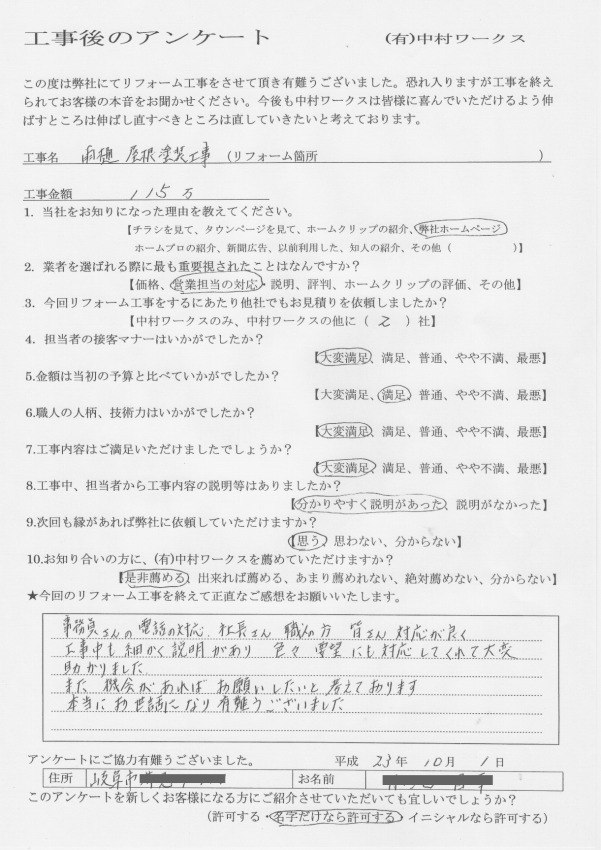 工事後のアンケート (有)中村ワークス
この度は弊社にてリフォーム工事をさせて頂き有難うございました。恐れ入りますが工事を終え
られてお客様の本音をお聞かせください。今後も中村ワークスは皆様に喜んでいただけるよう伸
ばすところは伸ばし直すべきところは直していきたいと考えております。
工事名 雨樋 屋根塗装工事 (リフォーム箇所 )
工事金額 115万
1. 当社をお知りになった理由を教えてください。
【チラシを見て、タウンページを見て、ホームクリップの紹介、弊社ホームページ
ホームプロの紹介、新聞広告、以前利用した、知人の紹介、その他( )】
2. 業者を選ばれる際に最も重要視されたことはなんですか?
【価格、営業担当の対応・説明、評判、ホームクリップの評価、その他】
3. 今回リフォーム工事をするにあたり他社でもお見積りを依頼しましたか?
【中村ワークスのみ、中村ワークスの他に( 2 )社】
4. 担当者の接客マナーはいかがでしたか?
【大変満足、満足、普通、やや不満、最悪】
5.金額は当初の予算と比べていかがでしたか?
【大変満足、満足、普通、やや不満、最悪】
6.職人の人柄、技術力はいかがでしたか?
【大変満足、満足、普通、やや不満、最悪】
7.工事内容はご満足いただけましたでしょうか?
【大変満足、満足、普通、やや不満、最悪】
8.工事中、担当者から工事内容の説明等はありましたか?
【分かりやすく説明があった、説明がなかった】
9.次回も縁があれば弊社に依頼していただけますか?
【思う、思わない、分からない】
10.お知り合いの方に、(有)中村ワークスを薦めていただけますか?
【是非薦める、出来れば薦める、あまり薦めれない、絶対薦めない、分からない】
★今回のリフォーム工事を終えて正直なご感想をお願いいたします。
事務員さんの電話の対応 社長さん 職人の方 皆さん 対応が良く
工事中も細かく説明があり 色々 要望にも対応してくれて大変
助かりました
また 機会があれば お願いしたいと考えております
本当にお世話になり有難うございました
アンケートにご協力有難うございました。 平成 23年 10月 1日
住所 岐阜市 お名前
このアンケートを新しくお客様になる方にご紹介させていただいても宜しいでしょうか?
(許可する・名字だけなら許可する・イニシャルなら許可する)